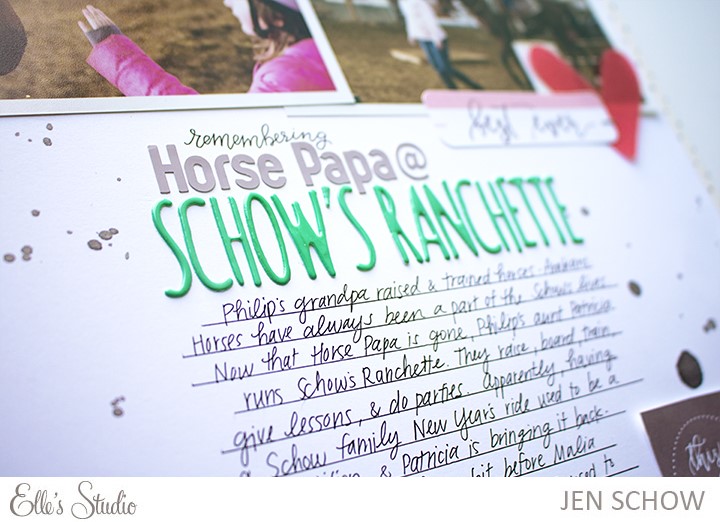 best ever
remembering
Horse Papa @
SCHOW'S RANCHETTE
Philip's grandpa raised & trained horses. Arabians.
Horses have always been a part of the Schow's lives.
Now that Horse Papa is gone, Philip's aunt Patricia
runs Schow's Ranchette. They raise, board, train,
give lessons, & do parties. Apparently, having
a Schow family New Year's ride used to be a
& Patricia is bringing it back.
before Malia
used to
this
Elle's Studio
JEN SCHOW